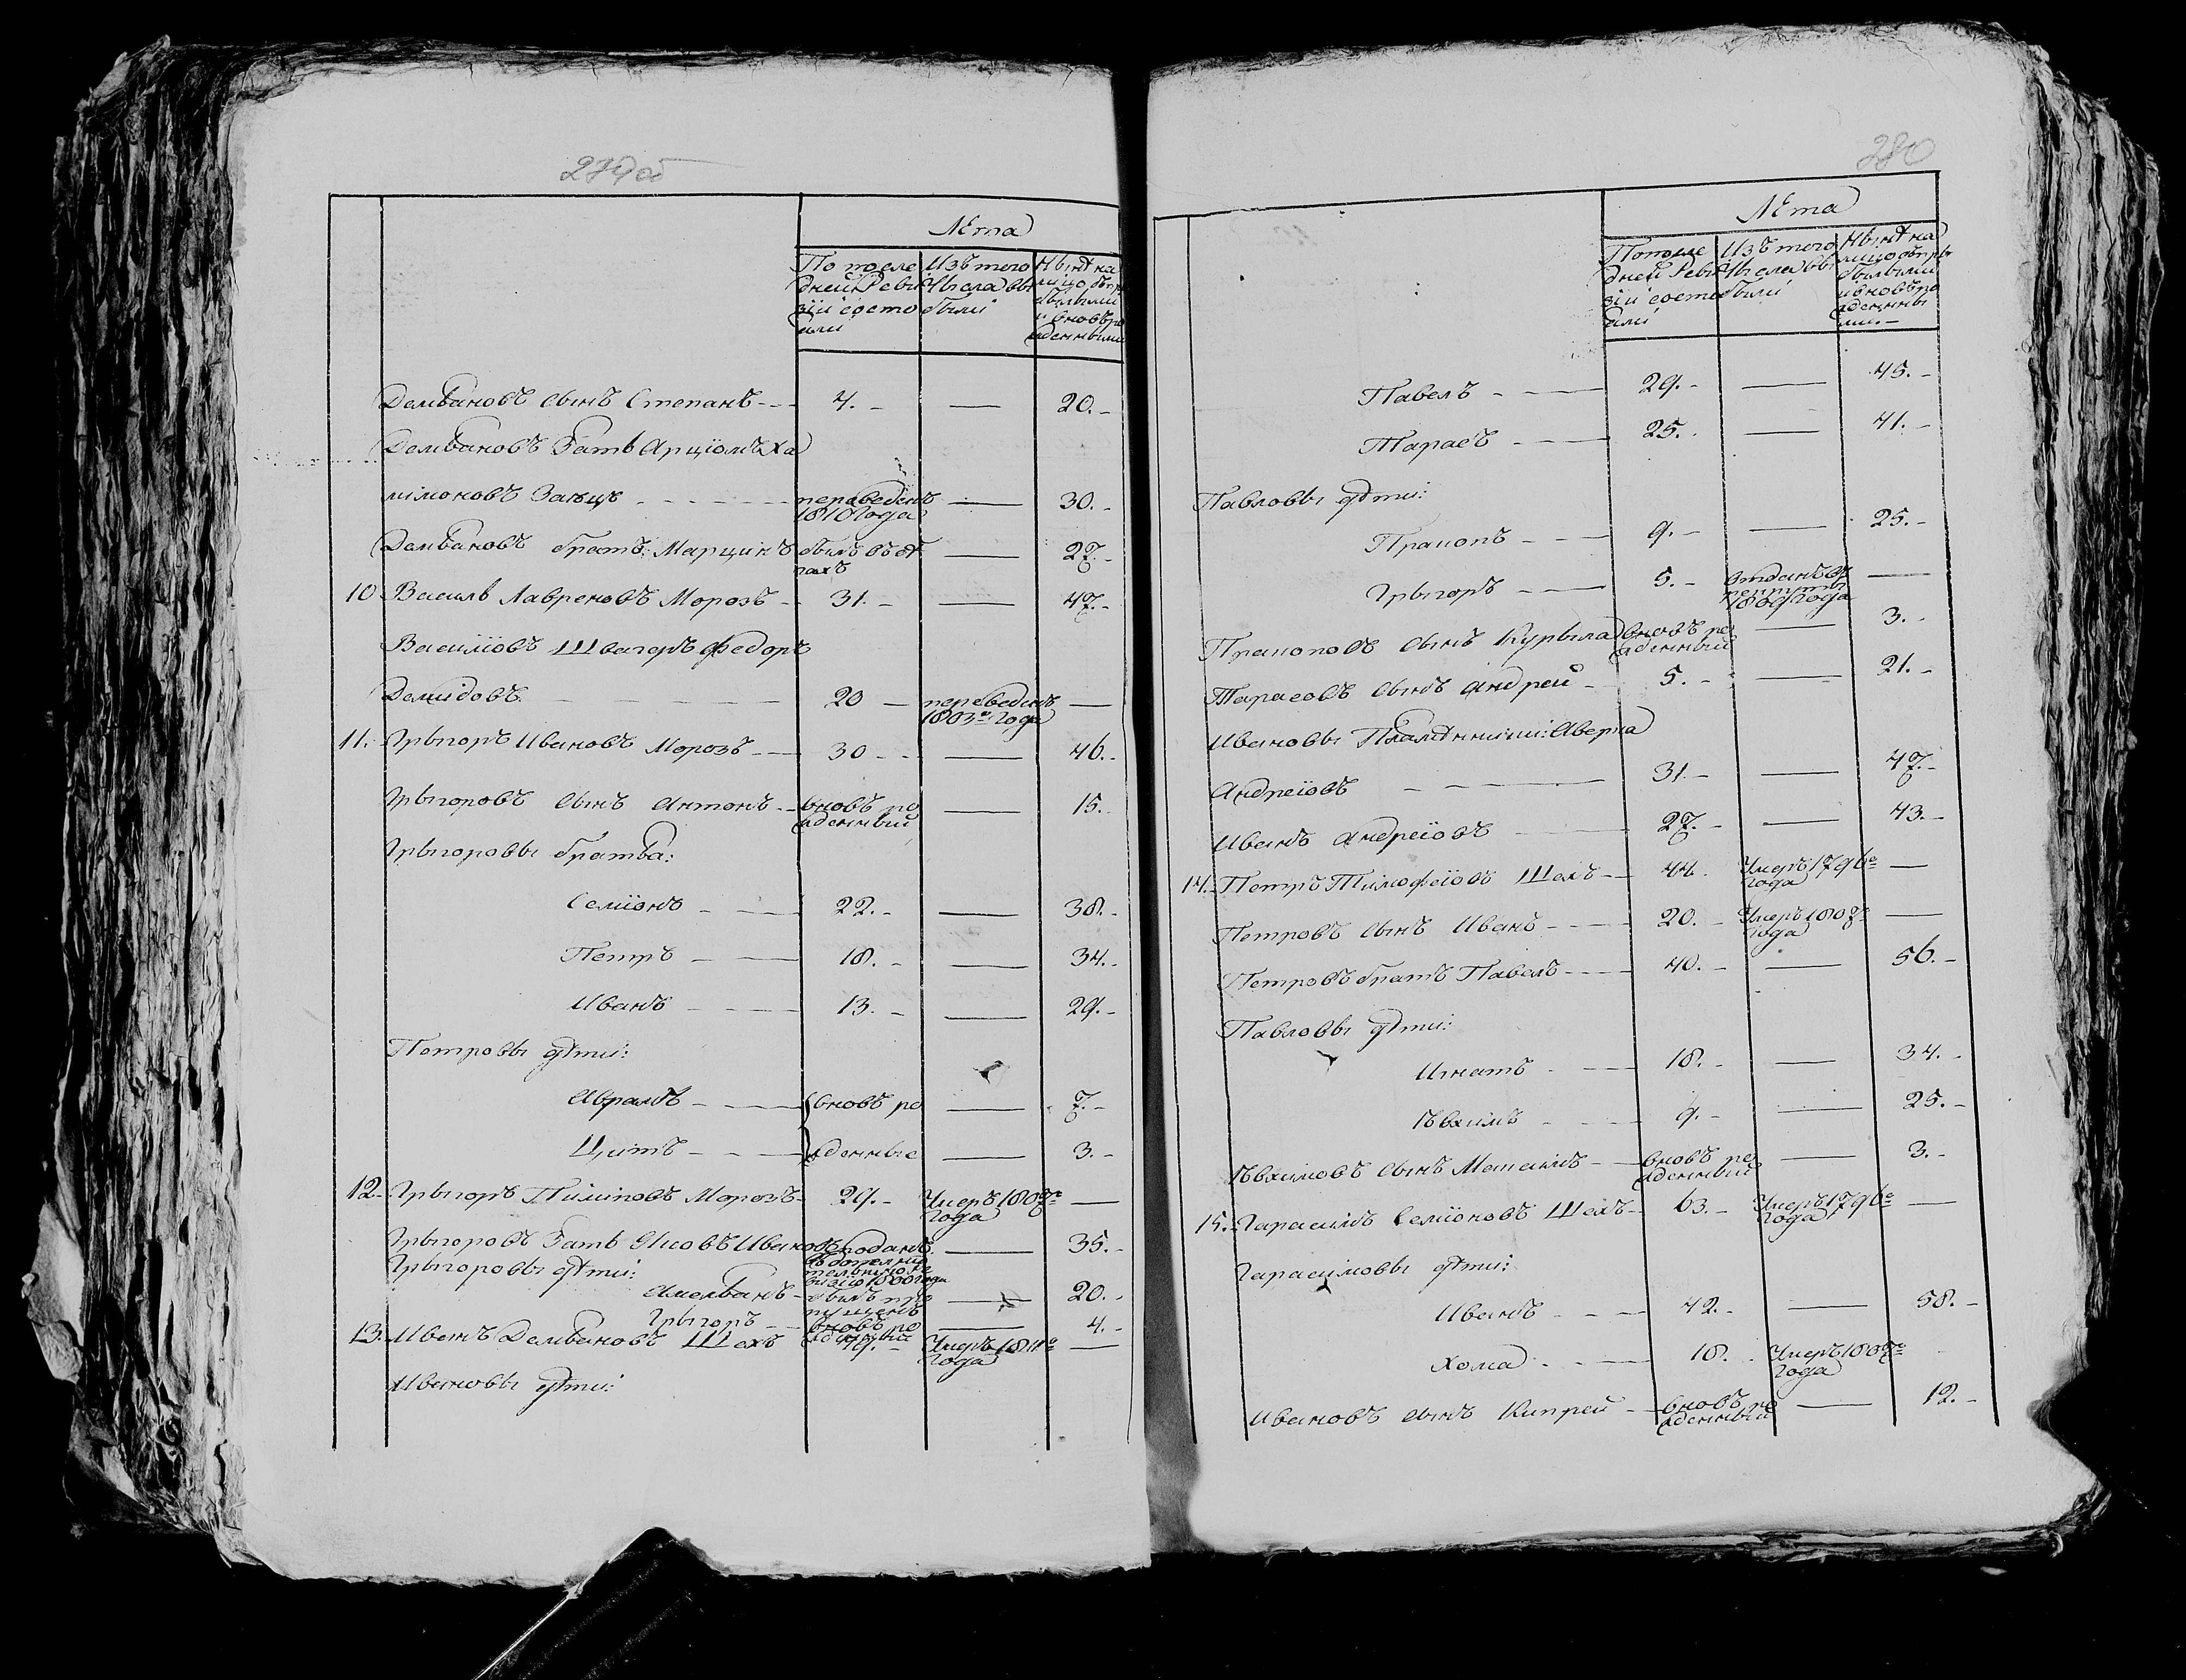 Лѣта
По после
дней Реви
зіи состо
яли
Изъ того
Числа вы
были
Нынѣ на
лицо съ пр
былыми
и вновъро
жденными
Демьяновъ сынъ Степанъ 4. — 20.
Демьяновъ Зать Арціомъ Ха
мімоновъ Заяцъ переведенъ — 30.
1810 года
Демьяновъ братъ Марцинъ былъ въ бѣ — 27.
гахъ
10 Василь Лавреновъ Морозъ 31. — 47.
Василіовъ Швагеръ Федоръ
Демидовъ 20 переведенъ —
1803го года
11. Грыгоръ Ивановъ Морозъ 30 — 46.
Грыгоровъ сынъ Антонъ вновъ ро — 15.
жденный
Грыгоровы братья:
Семіонъ 22. — 38.
Петръ 18. — 34.
Иванъ 13. — 29.
Петровы дѣти:
Абрамъ вновъ ро — 7.
Цитъ жденные — 3.
12. Грыгоръ Морозъ 29. Умеръ 1807го —
года
Грыгоровъ Зать Ивановъ поданъ — 35.
Грыгоровы дѣти:
Амельянъ былъ про — 20.
пущенъ
Грыгоръ вновъ ро — 4.
жденный
13. Иванъ Демьяновъ Шахъ 49. Умеръ 1811го —
года
Ивановы дѣти:
280
Лѣта
По после
дней Реви
зіи состо
яли
Изъ того
Числа вы
были
Нынѣ на
лицо съ при
былыми
и вновъ ро
жденны
ми
Павелъ 29. — 45.
Тарасъ 25. — 41.
Павловы дѣти:
Пракопъ 9. — 25.
Грыгоръ 5. отданъ въ —
рекруты
1809 года
Пракоповъ сынъ Курыла вновъ ро — 3.
жденный
Тарасовъ сынъ Андрей 5. — 21.
Ивановы Пламѣнники: Аверка
Андреіовъ 31. — 47.
Иванъ Андреіовъ 27. — 43.
14. Петръ Тимофеіовъ Шахъ 44. Умеръ 1796го —
года
Петровъ сынъ Иванъ 20. Умеръ 1807го —
года
Петровъ братъ Павелъ 40. — 56.
Павловы дѣти:
Игнатъ 18. — 34.
Ѣвхимъ 9. — 25.
Ѣвхимовъ сынъ Максимъ вновъ ро — 3.
жденный
15. Гарасимъ Семіоновъ Шахъ 63. Умеръ 1796го —
года
Гарасимовы дѣти:
Иванъ 42. — 58.
Хома 18. Умеръ 1807го
года
Ивановъ сынъ Кипрей вновъ ро — 12.
жденный